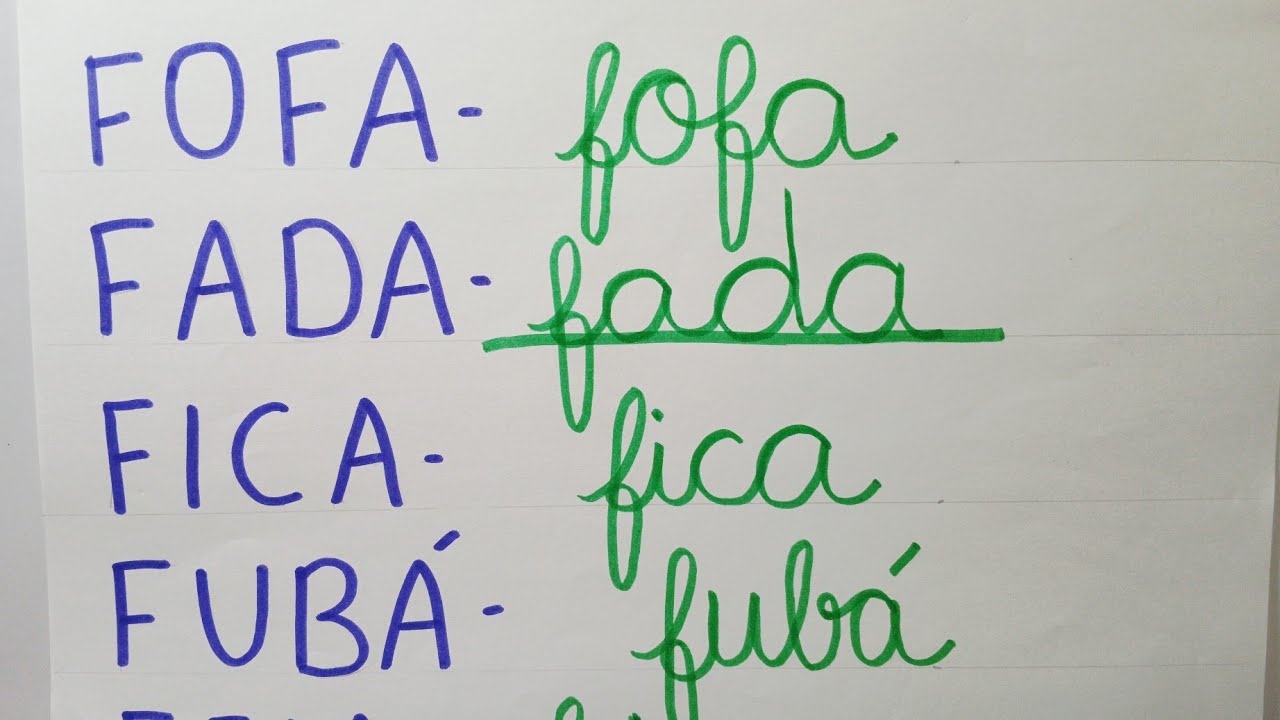 FOFA- fofa
FADA- fada
FICA- fica
FUBÁ- fubá